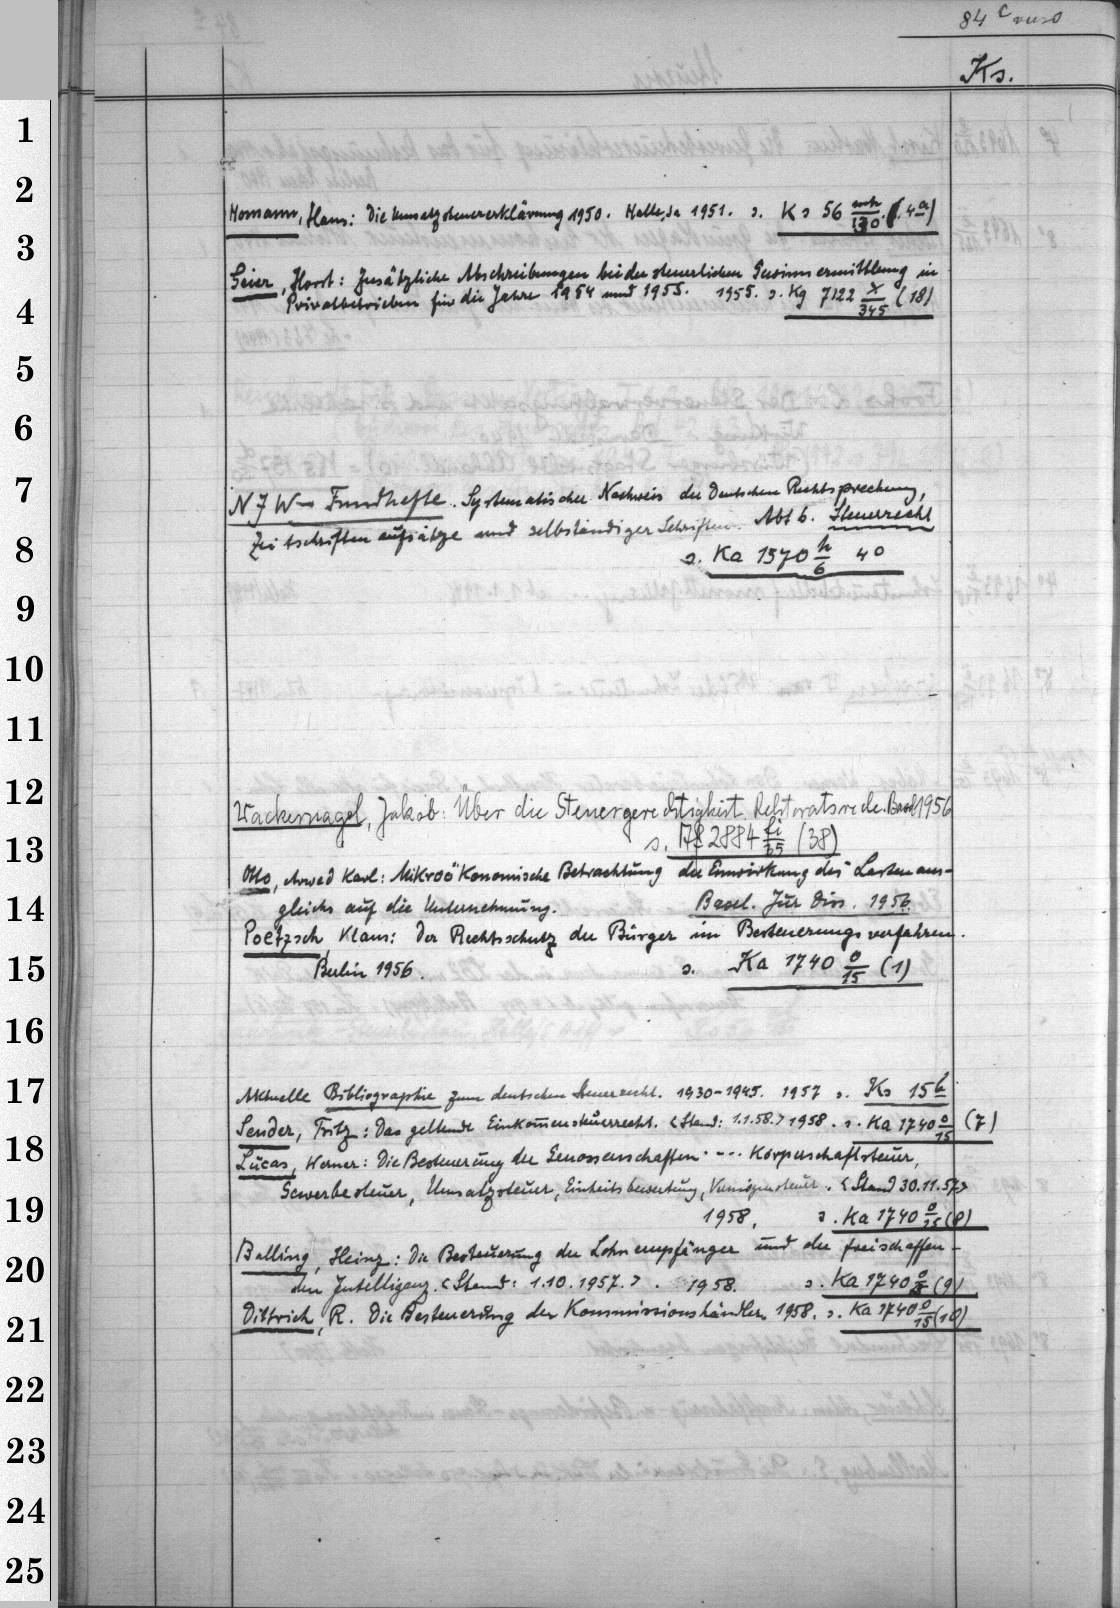 84 c verso
Ks.
1
2
3
4
5
6
7
8
9
10
11
12
13
14
15
16
17
18
19
20
21
22
23
24
25
Homann, Hans: Die Umsatzsteuererklärung 1950. Halle, Sa 1951. s. Ks 56 mh/130 (4a)
Geier, Horst: Zusätzliche Abschreibungen bei der steuerlichen Gewinnermittlung in
Privatbetrieben für die Jahre 1954 und 1955. 1955. s. Kg 7122 x/345 (18)
NJW Fundhefte. Systematischer Nachweis der Deutschen Rechtsprechung,
Zeitschriftenaufsätze und selbständiger Schriften. Abt 6. Steuerrecht
s. Ka 1570 h/6 40
Wackernagel, Jakob: Über die Steuergerechtigkeit. Rektoratsrede. Basel 1956
s. Af 2884 fi/35 (38)
Otto, Arwed Karl: Mikroökonomische Betrachtung der Einwirkung des Lastenaus-
gleichs auf die Unternehmung. Basel. Jur Diss. 1956
Poetzsch, Klaus: Der Rechtsschutz der Bürger im Besteuerungsverfahren.
Berlin 1956. s. Ka 1740 o/15 (1)
Aktuelle Bibliographie zum deutschen Steuerrecht. 1930-1945. 1957 s. Ks 15 b
Sender, Fritz: Das geltende Einkom̄ensteuerrecht. <Stand: 1.1.58.> 1958. s. Ka 1740 o/15 (7)
Lucas, Werner: Die Besteuerung der Genossenschaften. --- Körperschaftsteuer,
Gewerbesteuer, Umsatzsteuer, Einheitsbewertung, Vermögensteuer. <Stand 30.11.57>
1958, s. Ka 1740 o/15 (8)
Balling, Heinz: Die Besteuerung der Lohnempfänger und der freischaffen-
den Intelligenz. <Stand: 1.10.1957.>. 1958. s. Ka 1740 o/15 (9)
Dittrich, R. Die Besteuerung der Kommissionshändler. 1958. s. Ka 1740 o/15 (10)